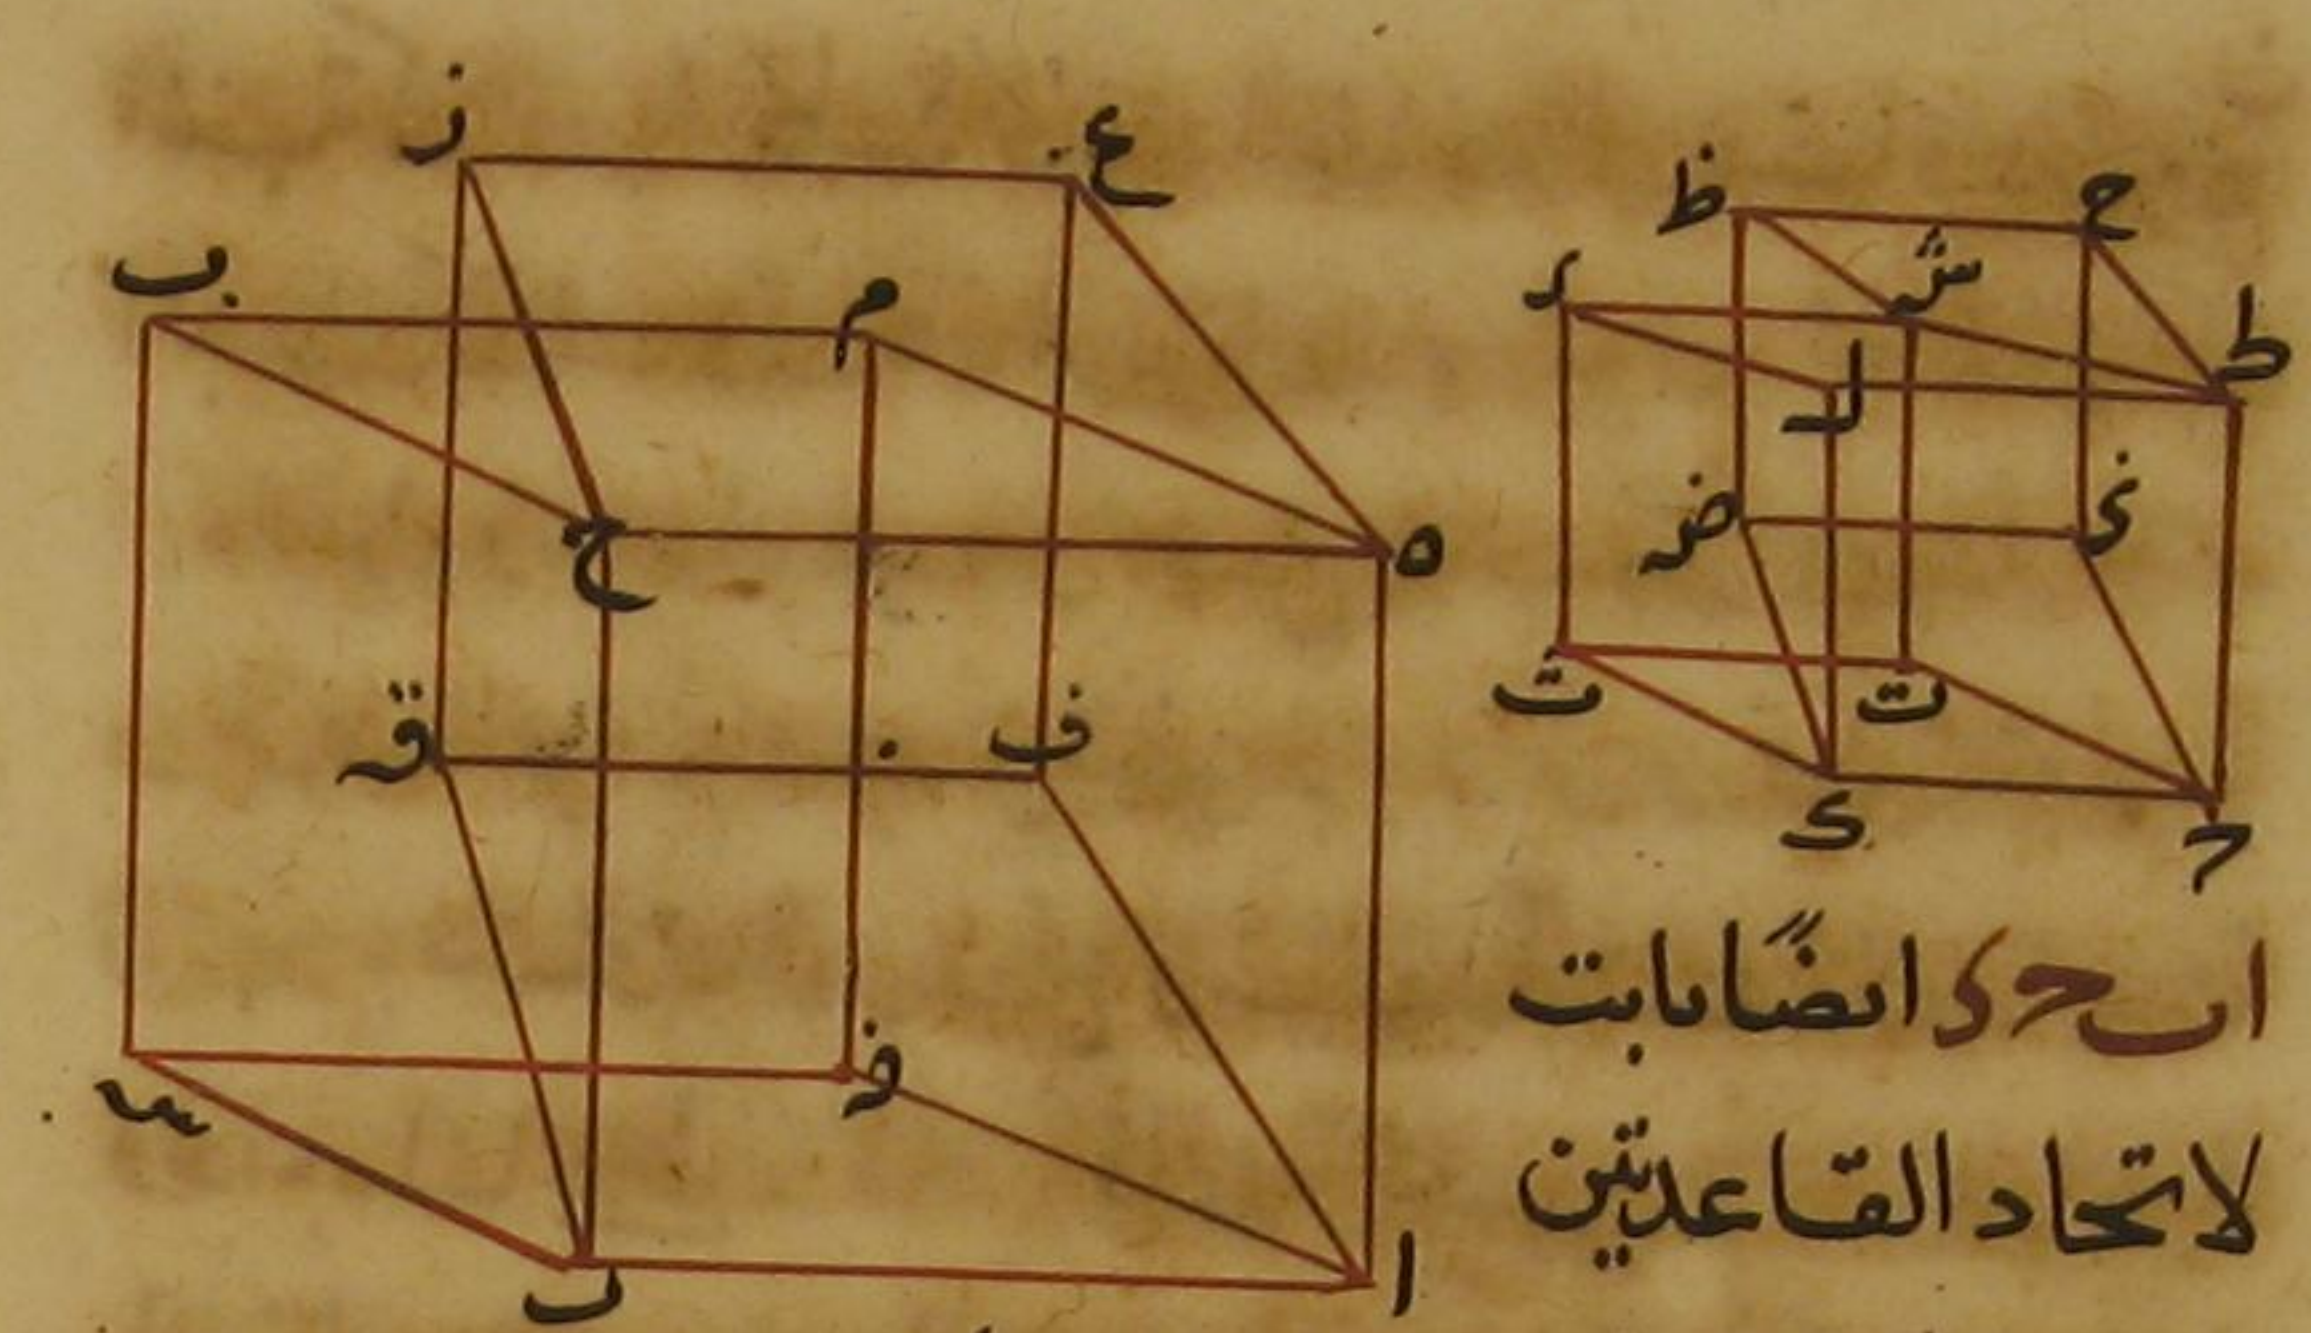 ز
ع
ب
م
ح
ه
ق
ف
ل
ا
ظ
ش
ط
ك
ض
ت
ت
ى
ح
اب حد ايضا ثابت
لاتحاد القاعدتين